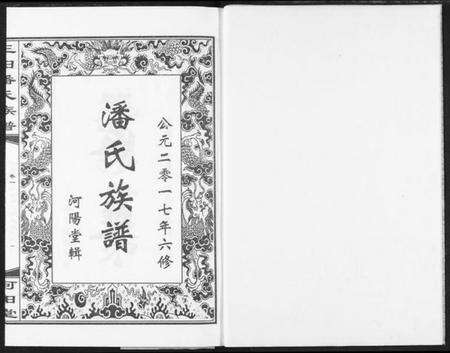 公元二零一七年六修
潘氏族譜
河陽堂輯